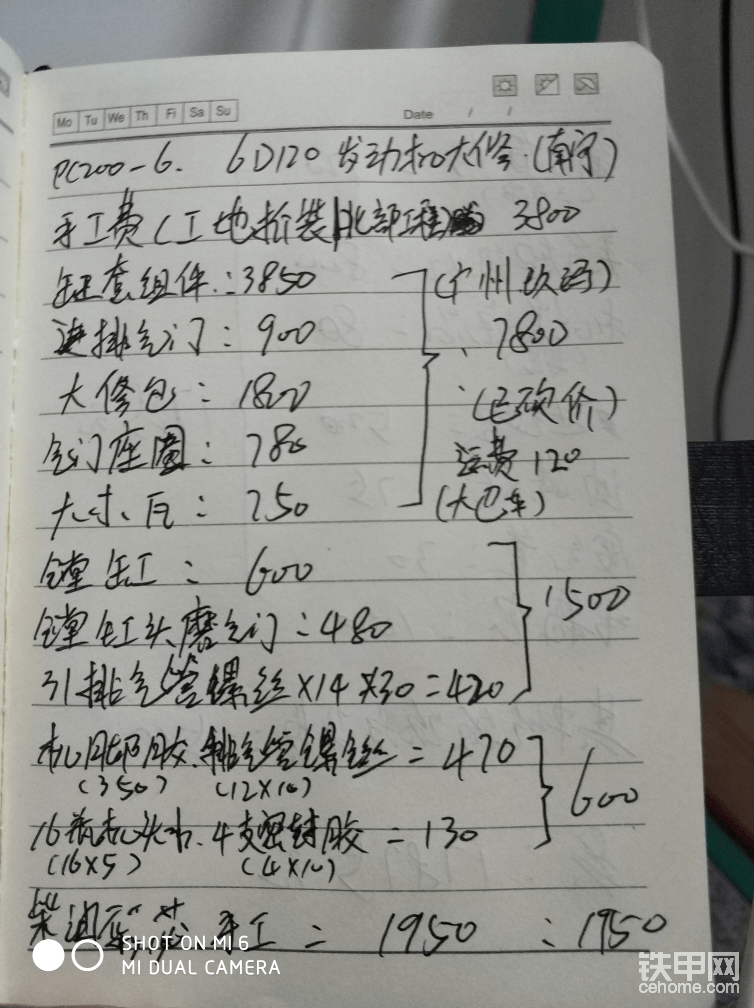 Mo Tu We Th Fr Sa Su Date / /
PC200-6. 6D120 发动机大修.(南宁)
手工费(工地拆装 北部工程) 3800
缸套组件:3850 (广州玖玛)
进排气门:900 7800
大修包:1800 (已砍价)
气门座圈:780 运费120
大小瓦:750 (大巴车)
镗缸:600
1500
镗缸头磨气门:480
引排气管螺丝×14×30=420
机脚胶.排气管螺丝=470
(350) (12×10)
600
16瓶机头水.4支密封胶=130
(16×5) (4×10)
柴油泵.芯.手工= 1950 :1950
SHOT ON MI 6
MI DUAL CAMERA
铁甲网
cehome.com